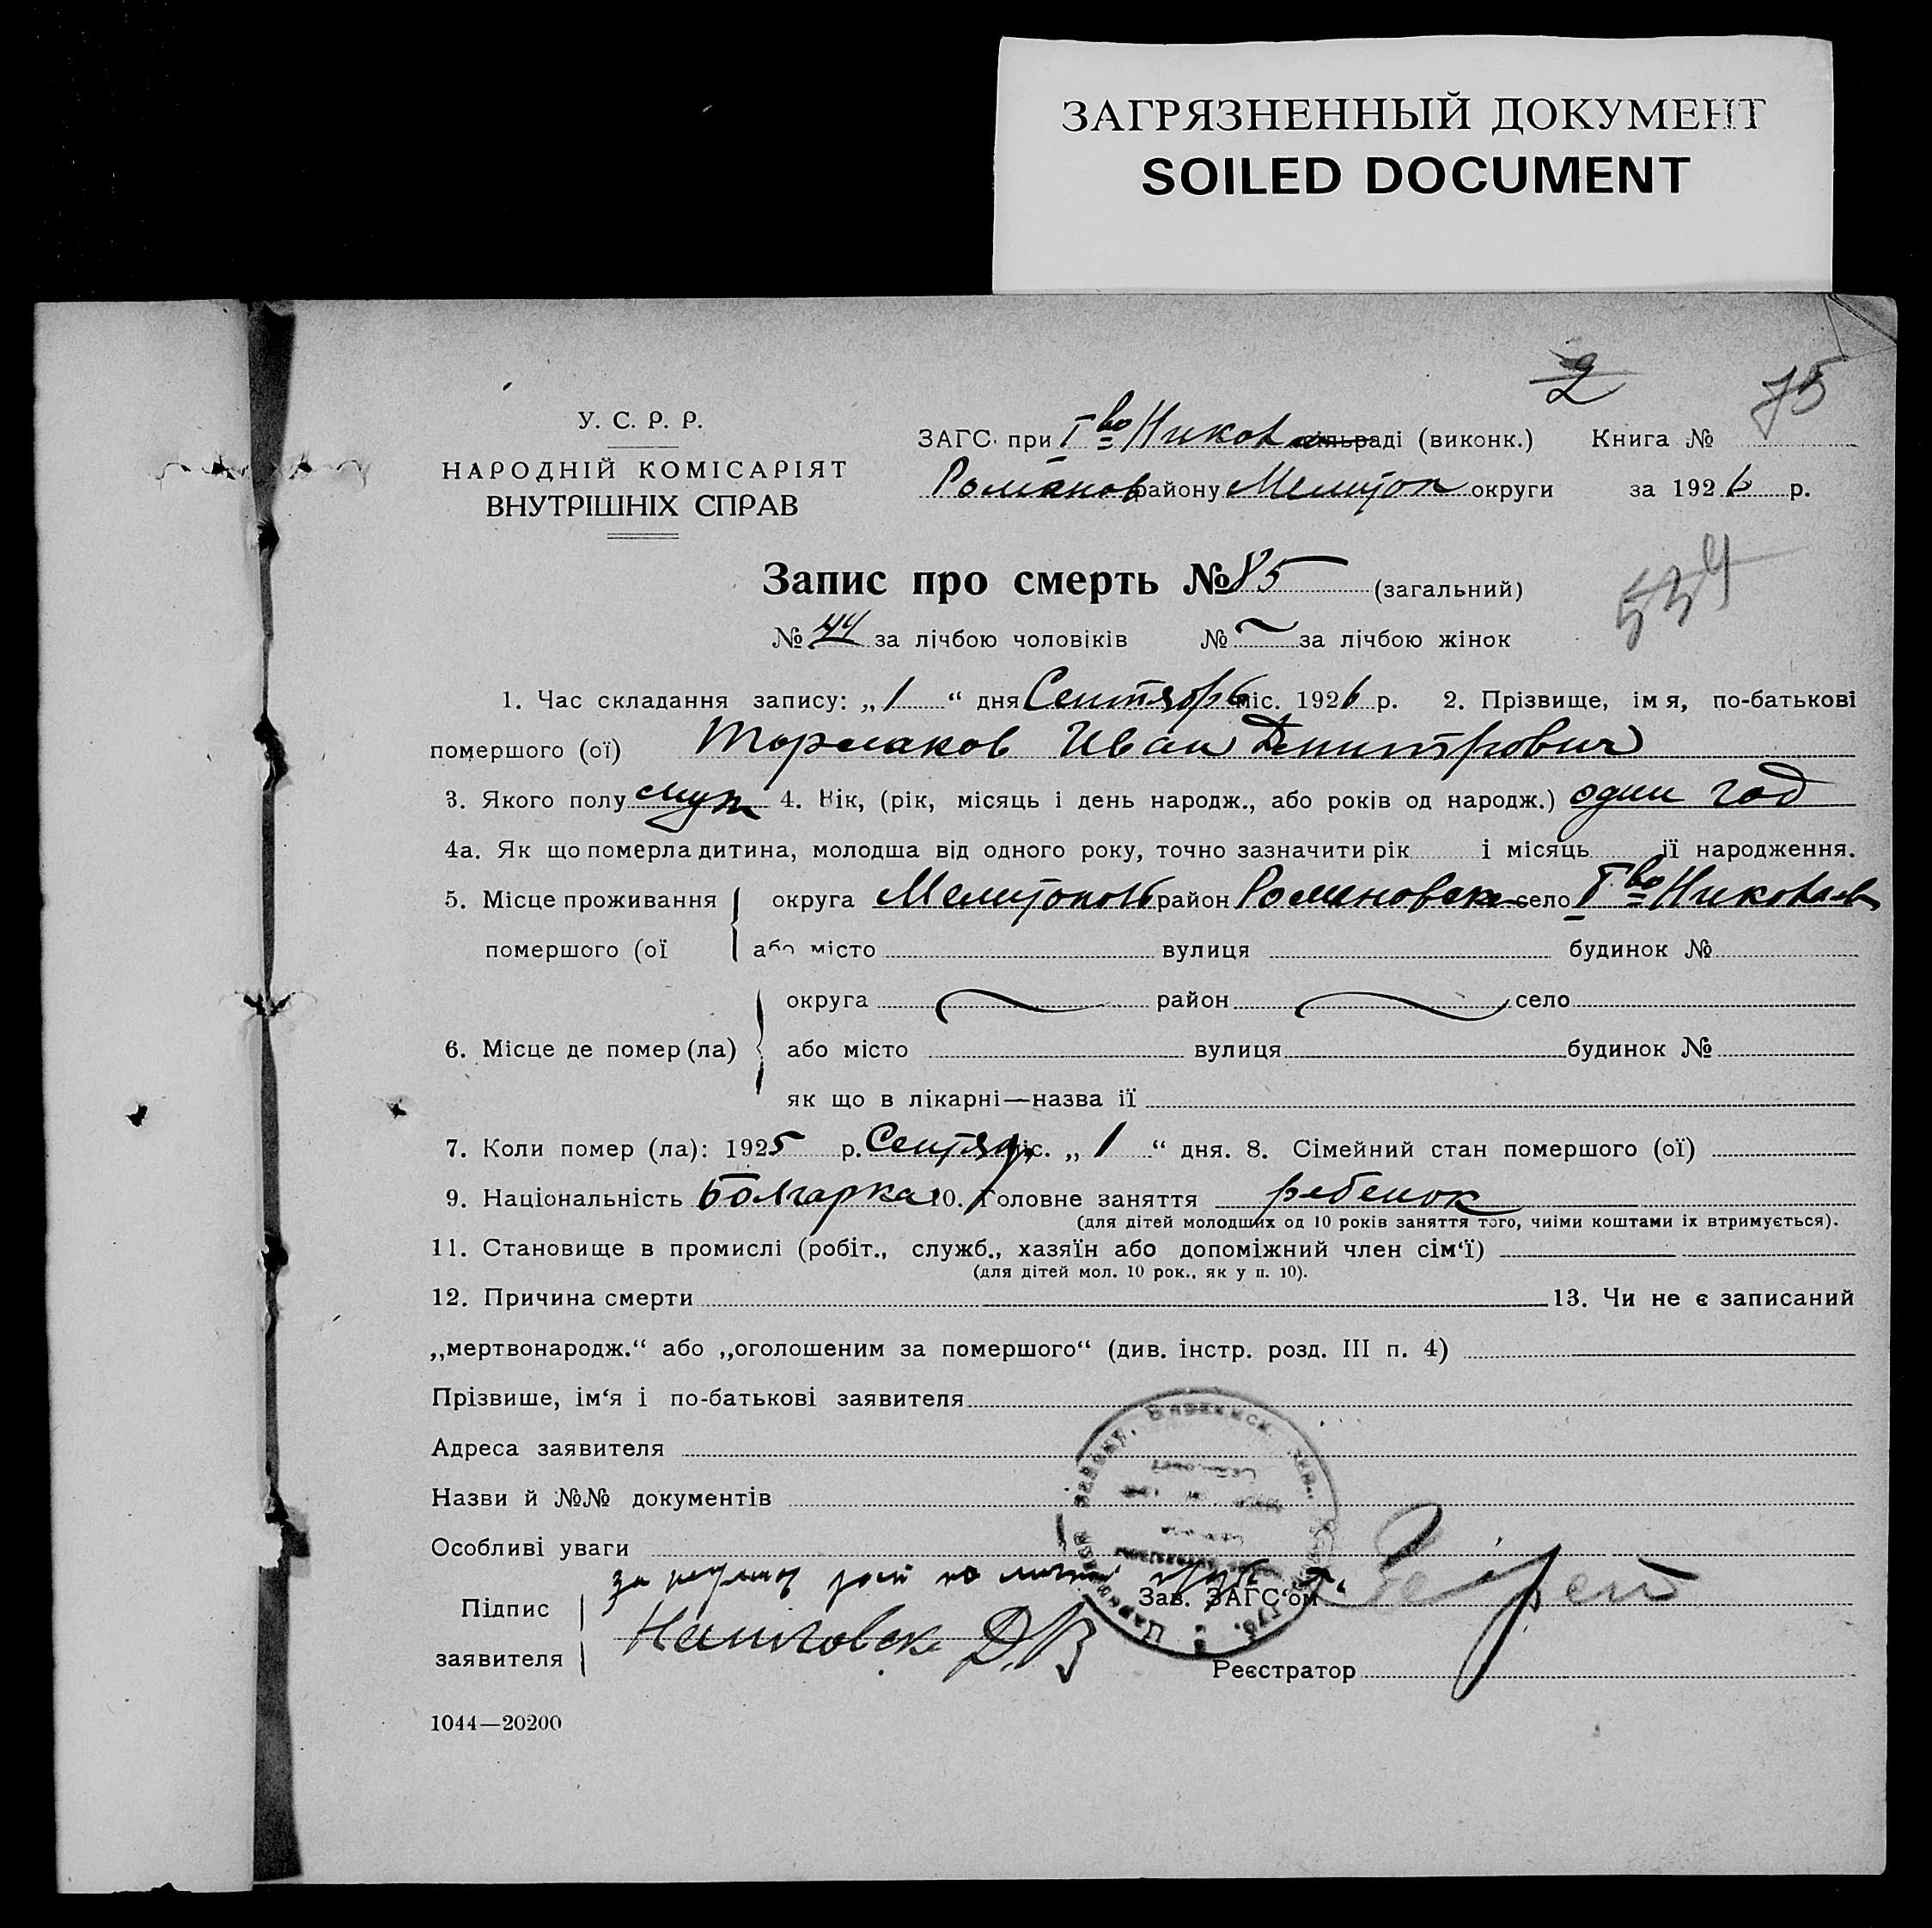 ЗАГРЯЗНЕННЫЙ ДОКУМЕНТ
SOILED DOCUMENT
2
75
У. С. Р. Р.
НАРОДНІЙ КОМІСАРІЯТ
ВНУТРІШНІХ СПРАВ
ЗАГС при І во Никол раді (виконк.) Книга №
Романов району Мелитоп округи за 1926 р.
Запис про смерть № 85 (загальний)
534
№ 44 за лічбою чоловіків № за лічбою жінок
1. Час складання запису: „ 1 “ дня Сентября міс. 1926 р. 2. Прізвище, імя, по-батькові
помершого (ої) Иван Дмитрович
3. Якого полу муж 4. Вік, (рік, місяць і день народж., або років од народж.) один год
4а. Як що померла дитина, молодша від одного року, точно зазначити рік і місяць її народження.
5. Місце проживання округа Мелитопол район Романовск село І во Николаев
помершого (ої або місто вулиця будинок №
округа район село
6. Місце де помер (ла) або місто вулиця будинок №
як що в лікарні—назва її
7. Коли помер (ла): 1925 р. Сентяб міс. „ 1 “ дня. 8. Сімейний стан помершого (ої)
9. Національність Болгарка 10. Головне заняття ребенок
(для дітей молодших од 10 років заняття того, чиїми коштами їх втримується).
11. Становище в промислі (робіт., служб., хазяїн або допоміжний член сім‘ї)
(для дітей мол. 10 рок., як у п. 10).
12. Причина смерти 13. Чи не є записаний
„мертвонародж.“ або „оголошеним за помершого“ (див. інстр. розд. III п. 4)
Прізвише, ім‘я і по-батькові заявителя
Адреса заявителя
Назви й №№ документів
Особливі уваги
за
Підпис Зав. ЗАГС‘ом
заявителя Д.В
Реєстратор
1044—20200